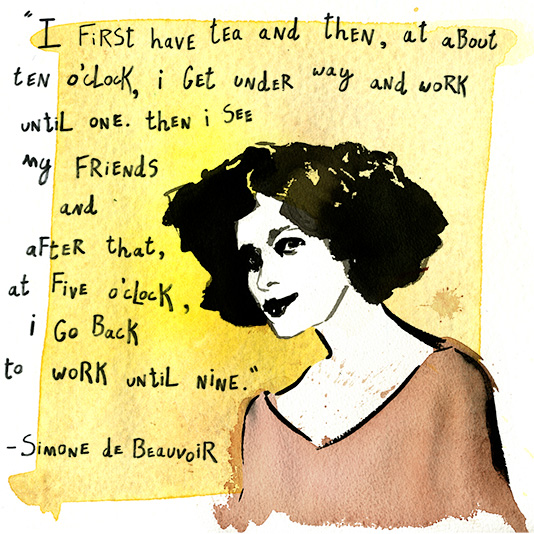 "I FiRST have tea and then, at aBout
ten o'clock, i Get under way and woRK
until one. then i See
my FRiends
and
aFteR that,
at Five o'clock,
i Go Back
to woRK until nine."
-Simone de BeauvoiR